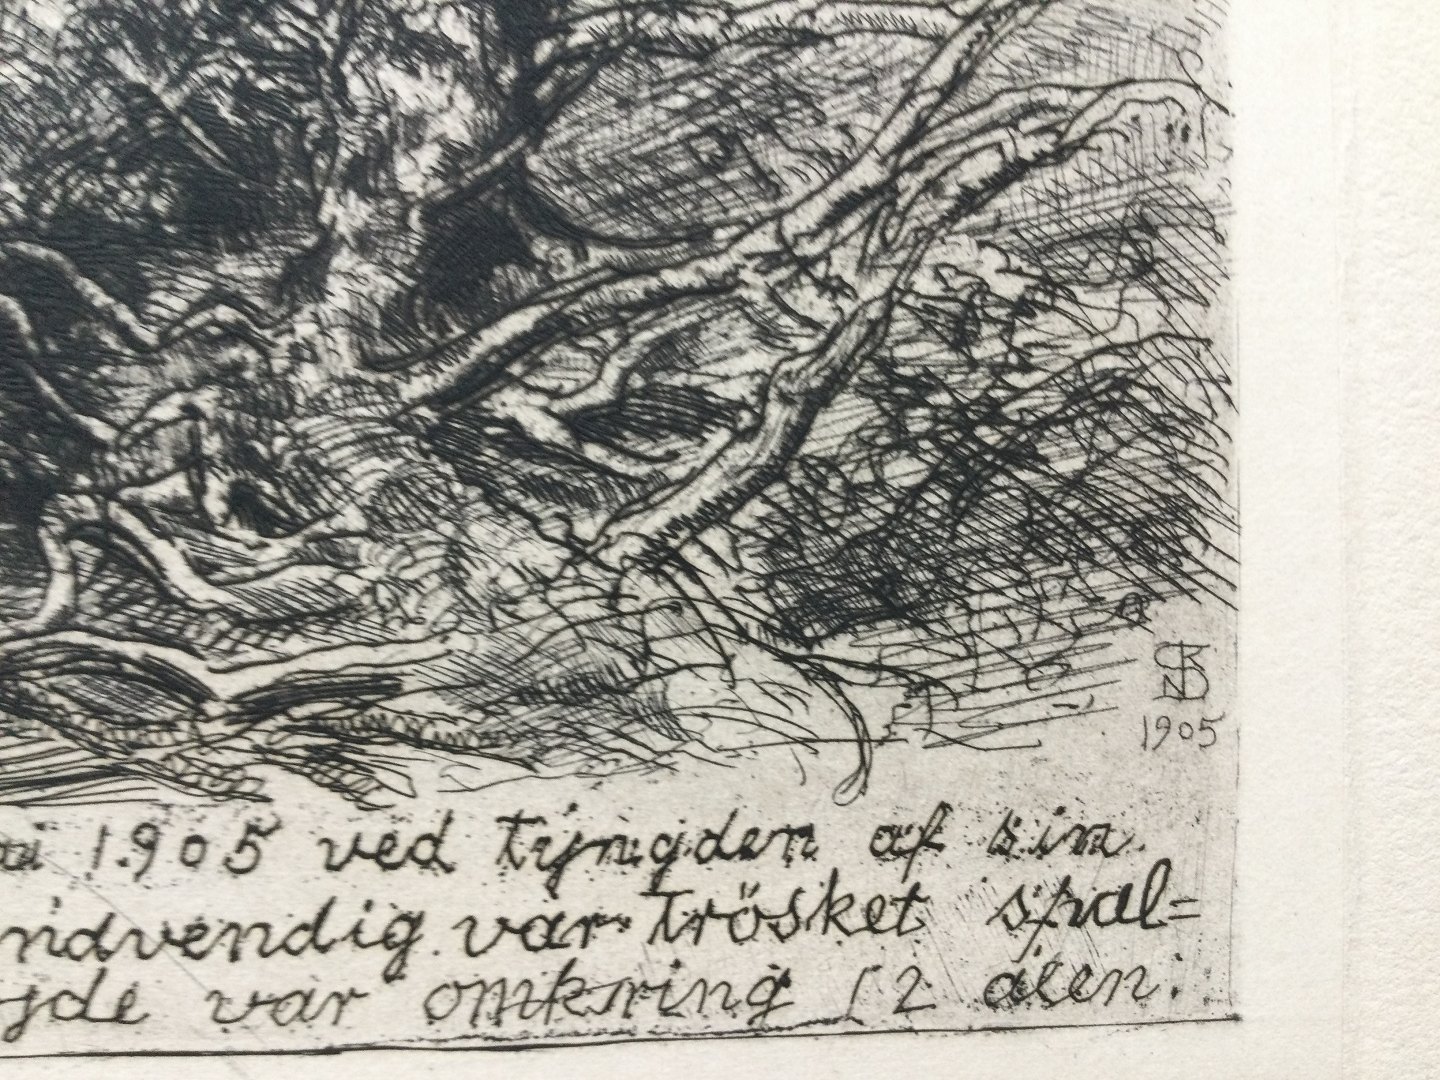 1905
1905 ved tyngden af sin
indvendig var trösket spal=
jde var omkring 12 alen.